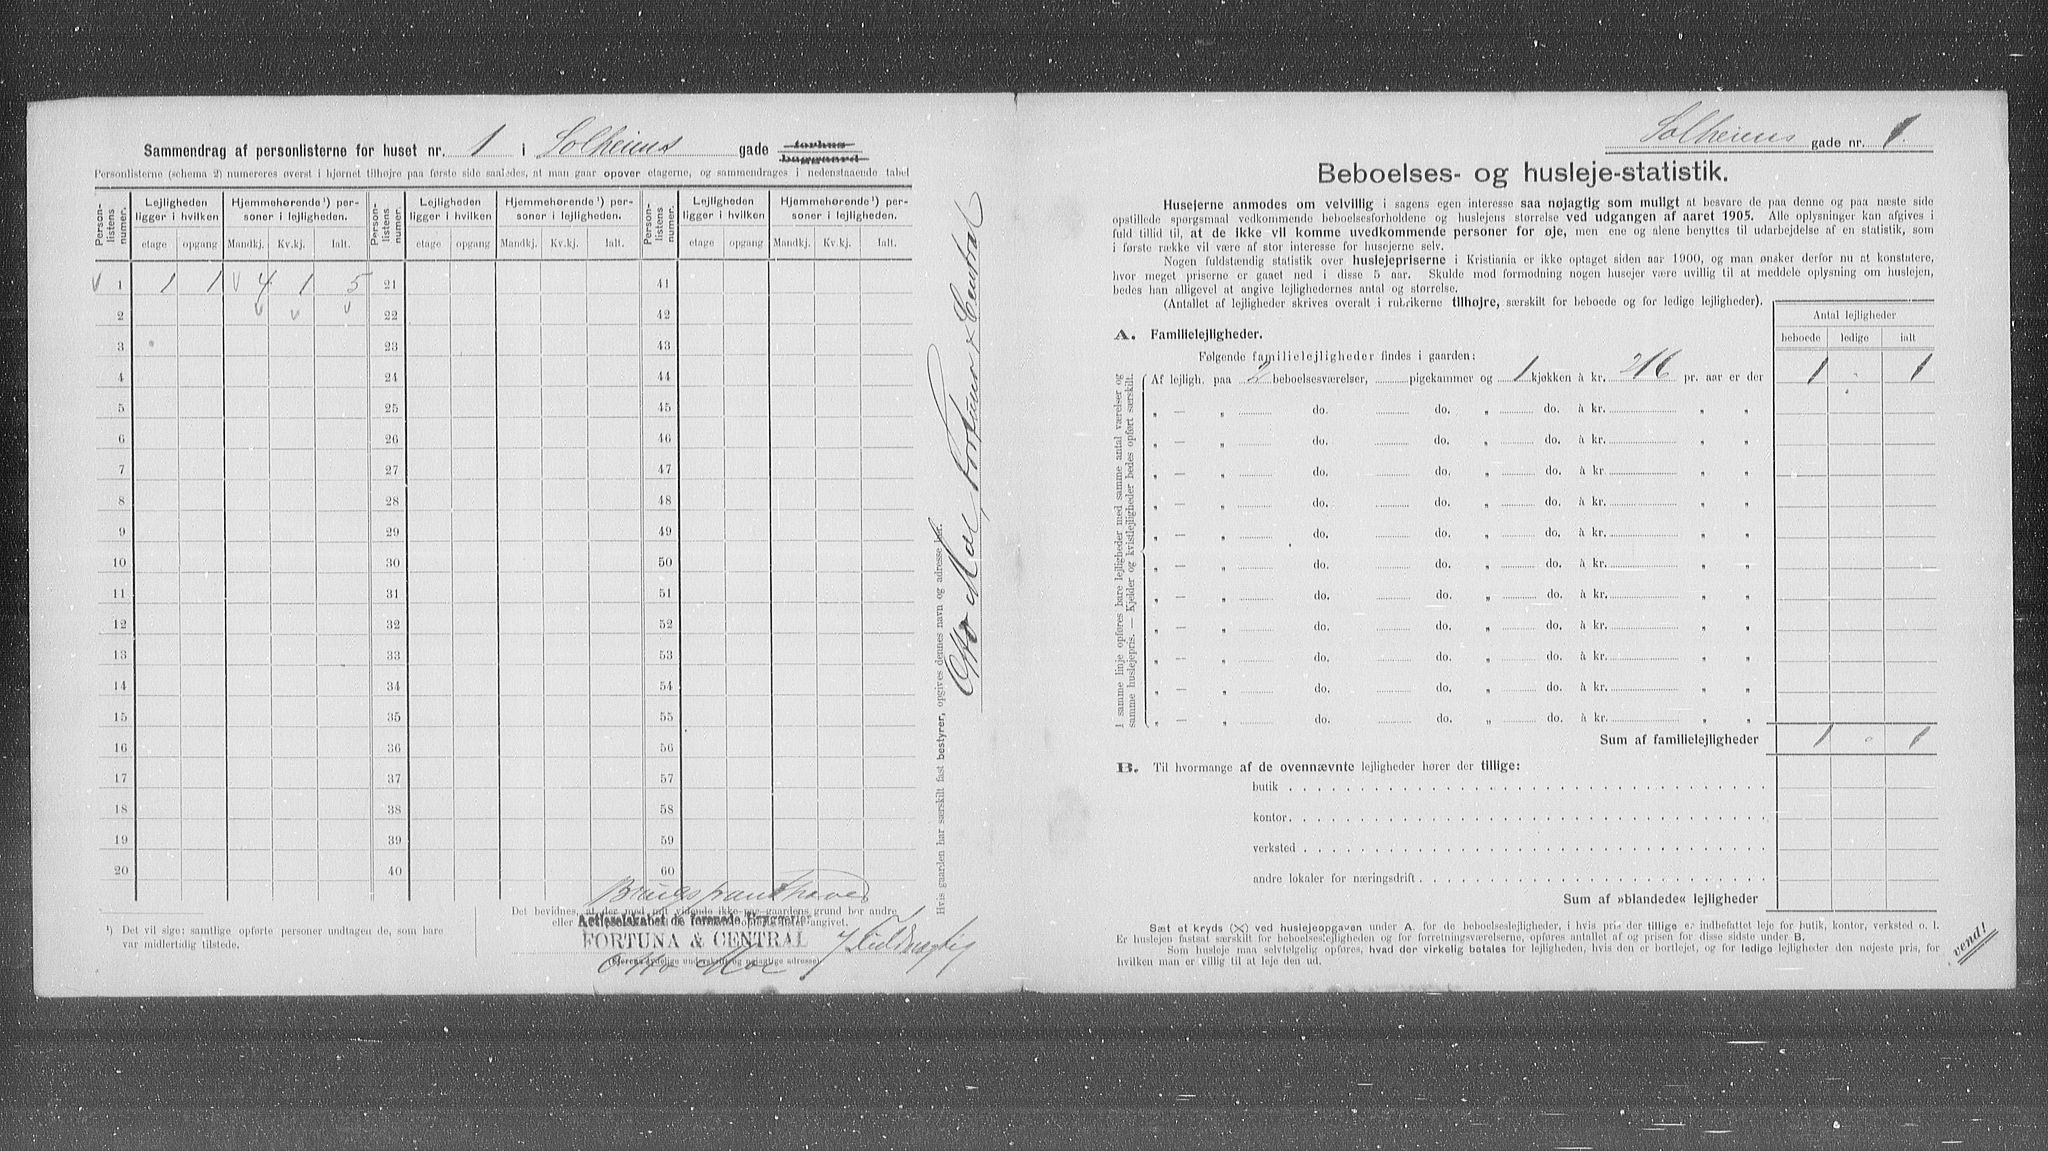 Sammendrag af personlisterne for huset nr. 1 i Solheims gade forhus baggaard
Personlisterne (schema 2) numereres øverst i hjørnet tilhøjre paa første side saaledes, at man gaar opover etagerne, og sammendrages i nedenstaaende tabel
Person-listens numer. Lejligheden ligger i hvilken Hjemmehørende¹) personer i lejligheden. Person-listens numer. Lejligheden ligger i hvilken Hjemmehørende¹) personer i lejligheden. Person-listens numer. Lejligheden ligger i hvilken Hjemmehørende¹) personer i lejligheden.
etage opgang Mandkj. Kv.kj. Ialt. etage opgang Mandkj. Kv.kj. Ialt. etage opgang Mandkj. Kv.kj. Ialt.
1 1 1 4 1 5 21 41
2 22 42
3 23 43
4 24 44
5 25 45
6 26 46
7 27 47
8 28 48
9 29 49
10 30 50
11 31 51
12 32 52
13 33 53
14 34 54
15 35 55
16 36 56
17 37 57
18 38 58
19 39 59
20 40 60
¹) Det vil sige: samtlige opførte personer undtagen de, som bare
var midlertidig tilstede.
Det bevidnes, at der med mit vidende ikke paa gaardens grund bor andre
Actieselskabet de forenede Bryggerier
FORTUNA & CENTRAL
Otto Moe
Hvis gaarden har særskilt fast bestyrer, opgives dennes navn og adresse her.
Otto Moe, Fortuna & Central
Solheims gade nr. 1.
Beboelses- og husleje-statistik.
Husejerne anmodes om velvillig i sagens egen interesse saa nøjagtig som muligt at besvare de paa denne og paa næste side
opstillede spørgsmaal vedkommende beboelsesforholdene og huslejens størrelse ved udgangen af aaret 1905. Alle oplysninger kan afgives i
fuld tillid til, at de ikke vil komme uvedkommende personer for øje, men ene og alene benyttes til udarbejdelse af en statistik, som
i første række vil være af stor interesse for husejerne selv.
Nogen fuldstændig statistik over huslejepriserne i Kristiania er ikke optaget siden aar 1900, og man ønsker derfor nu at konstatere,
hvor meget priserne er gaaet ned i disse 5 aar. Skulde mod formodning nogen husejer være uvillig til at meddele oplysning om huslejen,
bedes han alligevel at angive lejlighedernes antal og størrelse.
(Antallet af lejligheder skrives overalt i rubrikerne tilhøjre, særskilt for beboede og for ledige lejligheder).
Antal lejligheder
beboede ledige ialt
A. Familielejligheder.
Følgende familielejligheder findes i gaarden:
I samme linje opføres bare lejligheder med samme antal værelser og
samme huslejepris. — Kjelder og kvistlejligheder bedes opført særskilt.
Af lejligh. paa 2 beboelsesværelser, pigekammer og 1 kjøkken à kr. 216 pr. aar er der 1 - 1
„ — „ do. do. „ do. à kr. „ „
„ — „ do. do. „ do. à kr. „ „
„ — „ do. do. „ do. à kr. „ „
„ — „ do. do. „ do. à kr. „ „
„ — „ do. do. „ do. à kr. „ „
„ — „ do. do. „ do. à kr. „ „
„ — „ do. do. „ do. à kr. „ „
„ — „ do. do. „ do. à kr. „ „
„ — „ do. do. „ do. à kr. „ „
„ — „ do. do. „ do. à kr. „ „
„ — „ do. do. „ do. à kr. „ „
Sum af familielejligheder 1 - 1
B. Til hvormange af de ovennævnte lejligheder hører der tillige:
butik
kontor
verksted
andre lokaler for næringsdrift
Sum af »blandede« lejligheder
Sæt et kryds (×) ved huslejeopgaven under A. for de beboelseslejligheder, i hvis pris der tillige er indbefattet leje for butik, kontor, verksted o. l.
Er huslejen fastsat særskilt for beboelseslejligheden og for forretningsværelserne, opføres antallet af og prisen for disse sidste under B.
Som husleje maa selvfølgelig opføres, hvad der virkelig betales for lejligheden, hvis den er bortlejet, og for ledige lejligheder den nøjeste pris, for
hvilken man er villig til at leje den ud.
vend!